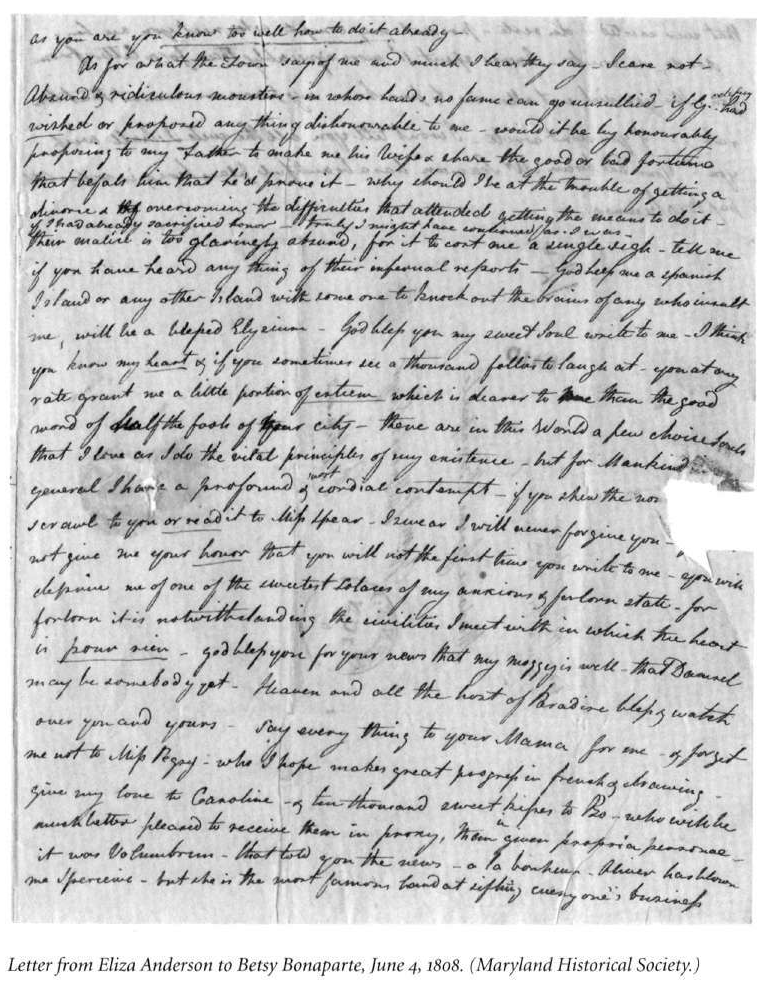 as you are you know too well how to do it already -
As for what the Town says of me and much I hear they say - I care not -
Absurd & ridiculous monsters - in whose hands no fame can go unsullied - if G. had
wished or proposed any thing dishonourable to me - would it be by honourably
proposing to my Father to make me his Wife & share the good or bad fortune
that befals him that he'd prove it - why should I be at the trouble of getting a
divorce & overcoming the difficulties that attended getting the means to do it -
if I had already sacrificed honor - truly I might have continued as I was -
their malice is too glaringly absurd, for it to cost me a single sigh - tell me
if you have heard any thing of their infernal reports - God help me a spanish
Island or any other Island with some one to knock out the brains of any who insult
me, will be a blessed Elyzium - God bless you my sweet Soul write to me - I think
you know my heart & if you sometimes see a thousand follies to laugh at - you at any
rate grant me a little portion of esteem which is dearer to me than the good
word of half the fools of your city - there are in this World a few choise Souls
that I love as I do the vital principles of my existence - but for Mankind
general I have a profound & most cordial contempt - if you shew the
scrawl to you or read it to Miss Spear - I swear I will never forgive you -
not give me your honor that you will not the first time you write to me - you will
deprive me of one of the sweetest solaces of my anxious & forlorn state - for
forlorn it is notwithstanding the civilities I meet with in which the heart
is pour rien - god bless you for your news that my moggy is well - that Damsel
may be somebody yet - Heaven and all the host of Paradise bless & watch
over you and yours - Say every thing to your Mama for me - & forget
me not to Miss Pegsy - who I hope makes great progress in french & drawing -
give my love to Caroline - & ten thousand sweet kisses to Bo - who will be
much better pleased to receive them in proxy, than given propria personae -
it was Volumbrun - that told you the news - a la bonheur - has blown
me I perceive - but she is the most famous hand at sifting every one's business
Letter from Eliza Anderson to Betsy Bonaparte, June 4, 1808. (Maryland Historical Society.)